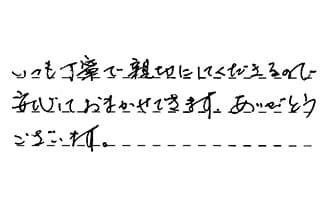 いつも丁寧で親切にしてくださるので
安心しておまかせできます。ありがとう
ございます。